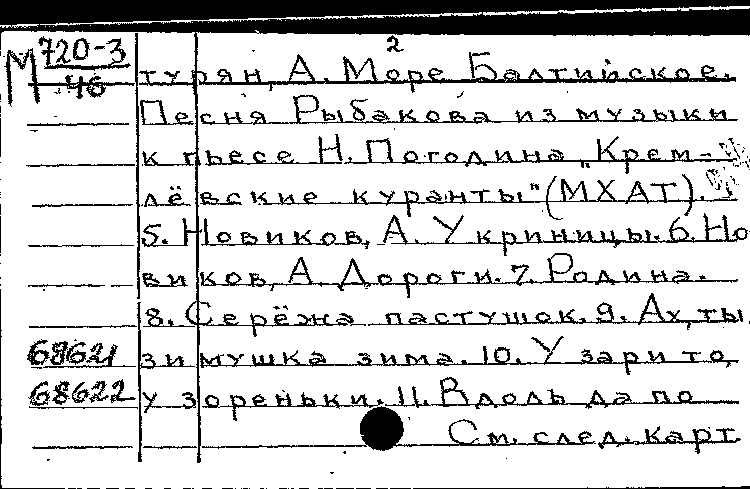 2
М 720-3
46
турян, А. Море Балтийское.
Песня Рыбакова из музыки
к пьесе Н. Погодина „Крем-
лёвские куранты" (МХАТ).
5. Новиков, А. У криницы. 6. Но
виков, А. Дороги. 7. Родина.
8. Серёжа пастушок. 9. Ах, ты
68621 зимушка зима. 10. У зари то,
68622 у зореньки. 11. Вдоль да по
См. след. карт.